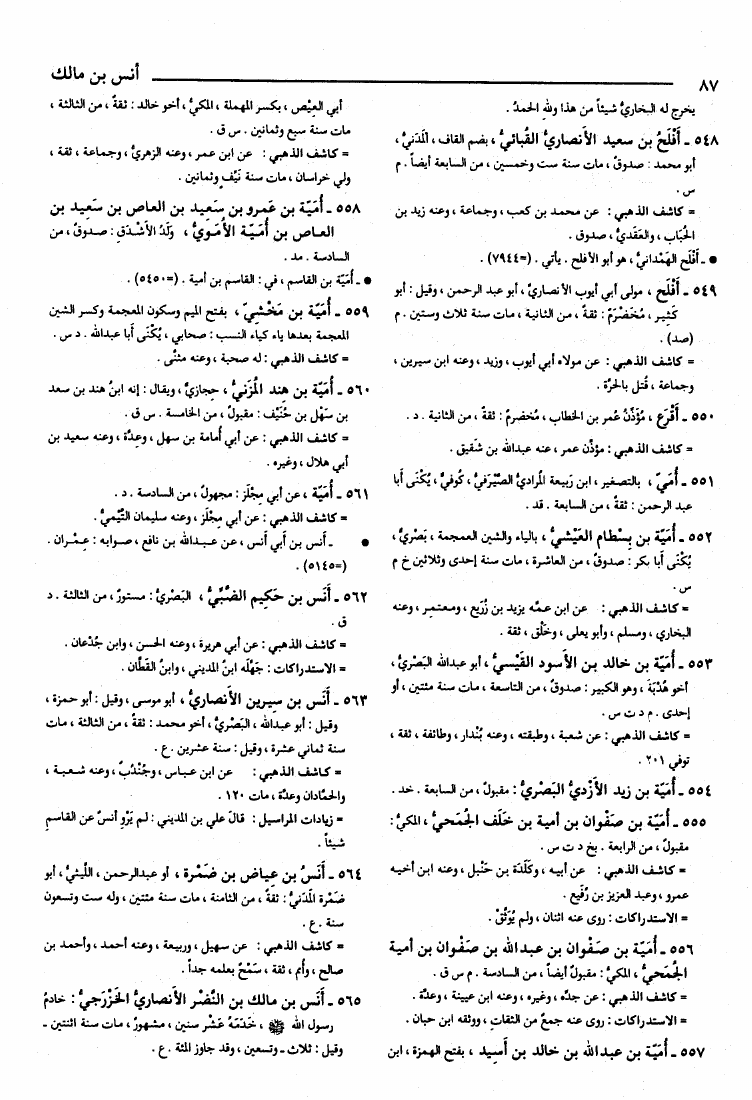 ٨٧ أنس بن مالك
يخرج له البخاريُّ شيئاً من هذا ولله الحمدُ .
٥٤٨ ـ أَفْلَحُ بن سعيد الأنصاريُّ القُبائيُّ ، بضم القاف ، المَدَنيُّ ،
أبو محمد : صدوقٌ ، مات سنة ست وخمسين ، من السابعة أيضاً . م
س .
= كاشف الذهبي : عن محمد بن كعب ، وجماعة ، وعنه زيد بن
الحُبَاب ، والعَقَديُّ ، صدوق .
● ـ أَفْلَح الهَمْدانيُّ ، هو أبو الأفلح . يأتي . (=٧٩٤٤) .
٥٤٩ ـ أَفْلَح ، مولى أبي أيوب الأنصاريُّ ، أبو عبد الرحمن ، وقيل : أبو
كَثِير ، مُخَضْرَمٌ : ثقةٌ ، من الثانية ، مات سنة ثلاث وستين . م
(صد) .
= كاشف الذهبي : عن مولاه أبي أيوب ، وزيد ، وعنه ابن سيرين ،
وجماعة ، قُتل بالحَرَّة .
٥٥٠ ـ أَقْرَع ، مؤذِّنُ عُمر بن الخطاب ، مُخضرمٌ : ثقةٌ ، من الثانية . د .
= كاشف الذهبي : مؤذِّن عمر ، عنه عبدالله بن شَقيق .
٥٥١ ـ أُمَيّ ، بالتصغير ، ابن رَبيعة المُراديُّ الصَّيْرَفيُّ ، كُوفيٌّ ، يُكْنَى أَبا
عبد الرحمن : ثقةٌ ، من السابعة . قد .
٥٥٢ ـ أُمَيَّة بن بِسْطام العَيْشيُّ ، بالياء والشين المعجمة ، بَصْريٌّ ،
يُكْنَى أبا بكر : صدوقٌ ، من العاشرة ، مات سنة إحدى وثلاثين خ م
س .
= كاشف الذهبي : عن ابن عمِّه يزيد بن زُرَيع ، ومعتمِر ، وعنه
البخاري ، ومسلم ، وأبو يعلى ، وخَلْق ، ثقة .
٥٥٣ ـ أُمَيَّة بن خالد بن الأسود القَيْسيُّ ، أبو عبدالله البَصْريُّ ،
أخو هُدْبَة ، وهو الكبير : صدوقٌ ، من التاسعة ، مات سنة مئتين ، أو
إحدى . م د ت س .
= كاشف الذهبي : عن شعبة ، وطبقته ، وعنه بُنْدار ، وطائفة ، ثقة ،
توفي ٢٠١ .
٥٥٤ ـ أُمَيَّة بن زيد الأَزْديُّ البَصْريُّ : مقبولٌ ، من السابعة . خد .
٥٥٥ ـ أُمَيَّة بن صَفْوان بن أمية بن خَلَف الجُمَحيُّ ، المكيُّ :
مقبولٌ ، من الرابعة . بخ د ت س .
= كاشف الذهبي : عن أبيه ، وكَلَدَة بن حَنْبل ، وعنه ابن أخيه
عمرو ، وعبد العزيز بن رُفَيع .
= الاستدراكات : روى عنه اثنان ، ولم يُوَثَّقْ .
٥٥٦ ـ أُمَيَّة بن صَفْوان بن عبدالله بن صَفْوان بن أمية
الجُمَحيُّ ، المكيُّ : مقبولٌ أيضاً ، من السادسة . م س ق .
= كاشف الذهبي : عن جدِّه ، وغيره ، وعنه ابن عيينة ، وعدَّة .
= الاستدراكات : روى عنه جمعٌ من الثقات ، ووثقه ابن حبان .
٥٥٧ ـ أُمَيَّة بن عبدالله بن خالد بن أَسِيد ، بفتح الهمزة ، ابن
أبي العِيْص ، بكسر المهملة ، المكيُّ ، أخو خالد : ثقةٌ ، من الثالثة ،
مات سنة سبع وثمانين . س ق .
= كاشف الذهبي : عن ابن عمر ، وعنه الزهريُّ ، وجماعة ، ثقة ،
ولي خراسان ، مات سنة نَيِّفٍ وثمانين .
٥٥٨ ـ أُمَيَّة بن عَمرو بن سَعِيد بن العاص بن سَعِيد بن
العاص بن أُمَيَّة الأُمَويُّ ، وَلَدُ الأَشْدَقِ : صدوقٌ ، من
السادسة . مد .
● ـ أُمَيَّة بن القاسم ، في : القاسم بن أمية . (=٥٤٥٠) .
٥٥٩ ـ أُمَيَّة بن مَخْشيِّ ، بفتح الميم وسكون المعجمة وكسر الشين
المعجمة بعدها ياء كياء النسب : صحابي ، يُكْنَى أبا عبدالله . د س .
= كاشف الذهبي : له صحبة ، وعنه مثنَّى .
٥٦٠ ـ أُمَيَّة بن هند المُزَنيُّ ، حِجازيٌّ ، ويقال : إنه ابنُ هند بن سعد
بن سَهْل بن حُنَيْف : مقبولٌ ، من الخامسة . س ق .
= كاشف الذهبي : عن أبي أُمامة بن سهل ، وعِدَّة ، وعنه سعيد بن
أبي هلال ، وغيره .
٥٦١ ـ أُمَيَّة ، عن أبي مِجْلَز : مجهولٌ ، من السادسة . د .
= كاشف الذهبي : عن أبي مِجْلَز ، وعنه سليمان التَّيْميُّ .
● ـ أنس بن أبي أنس ، عن عبدالله بن نافع ، صوابه : عِمْران .
(=٥١٤٥) .
٥٦٢ ـ أَنَس بن حَكيم الضَّبِّيُّ ، البَصْريُّ : مستورٌ ، من الثالثة . د
ق .
= كاشف الذهبي : عن أبي هريرة ، وعنه الحسن ، وابن جُدْعان .
= الاستدراكات : جَهَّلَه ابنُ المديني ، وابنُ القَطَّان .
٥٦٣ ـ أَنَس بن سِيرين الأنصاريُّ ، أبو موسى ، وقيل : أبو حمزة ،
وقيل : أبو عبدالله ، البَصْريُّ ، أخو محمد : ثقةٌ ، من الثالثة ، مات
سنة ثماني عشرة ، وقيل : سنة عشرين . ع .
= كاشف الذهبي : عن ابن عباس ، وجُنْدُبٌ ، وعنه شعبة ،
والحمَّادان وعدَّة ، مات ١٢٠ .
= زيادات المراسيل : قالَ علي بن المديني : لم يَرْوِ أنسٌ عن القاسمِ
شيئاً .
٥٦٤ ـ أَنَسُ بن عِياض بن ضَمْرة ، أو عبدالرحمن ، اللَّيثيُّ ، أبو
ضَمْرة المَدَنيُّ : ثقةٌ ، من الثامنة ، مات سنة مئتين ، وله ست وتسعون
سنة . ع .
= كاشف الذهبي : عن سهيل ، وربيعة ، وعنه أحمد ، وأحمد بن
صالح ، وأُمم ، ثقة ، سَمْحٌ بعلمه جداً .
٥٦٥ ـ أَنَس بن مالك بن النَّضْر الأنصاريُّ الخَزْرَجيُّ : خادمُ
رسول الله ﷺ ، خَدَمَهُ عَشْرَ سنين ، مشهورٌ ، مات سنة اثنتين ـ
وقيل : ثلاث ـ وتسعين ، وقد جاوز المئة . ع .